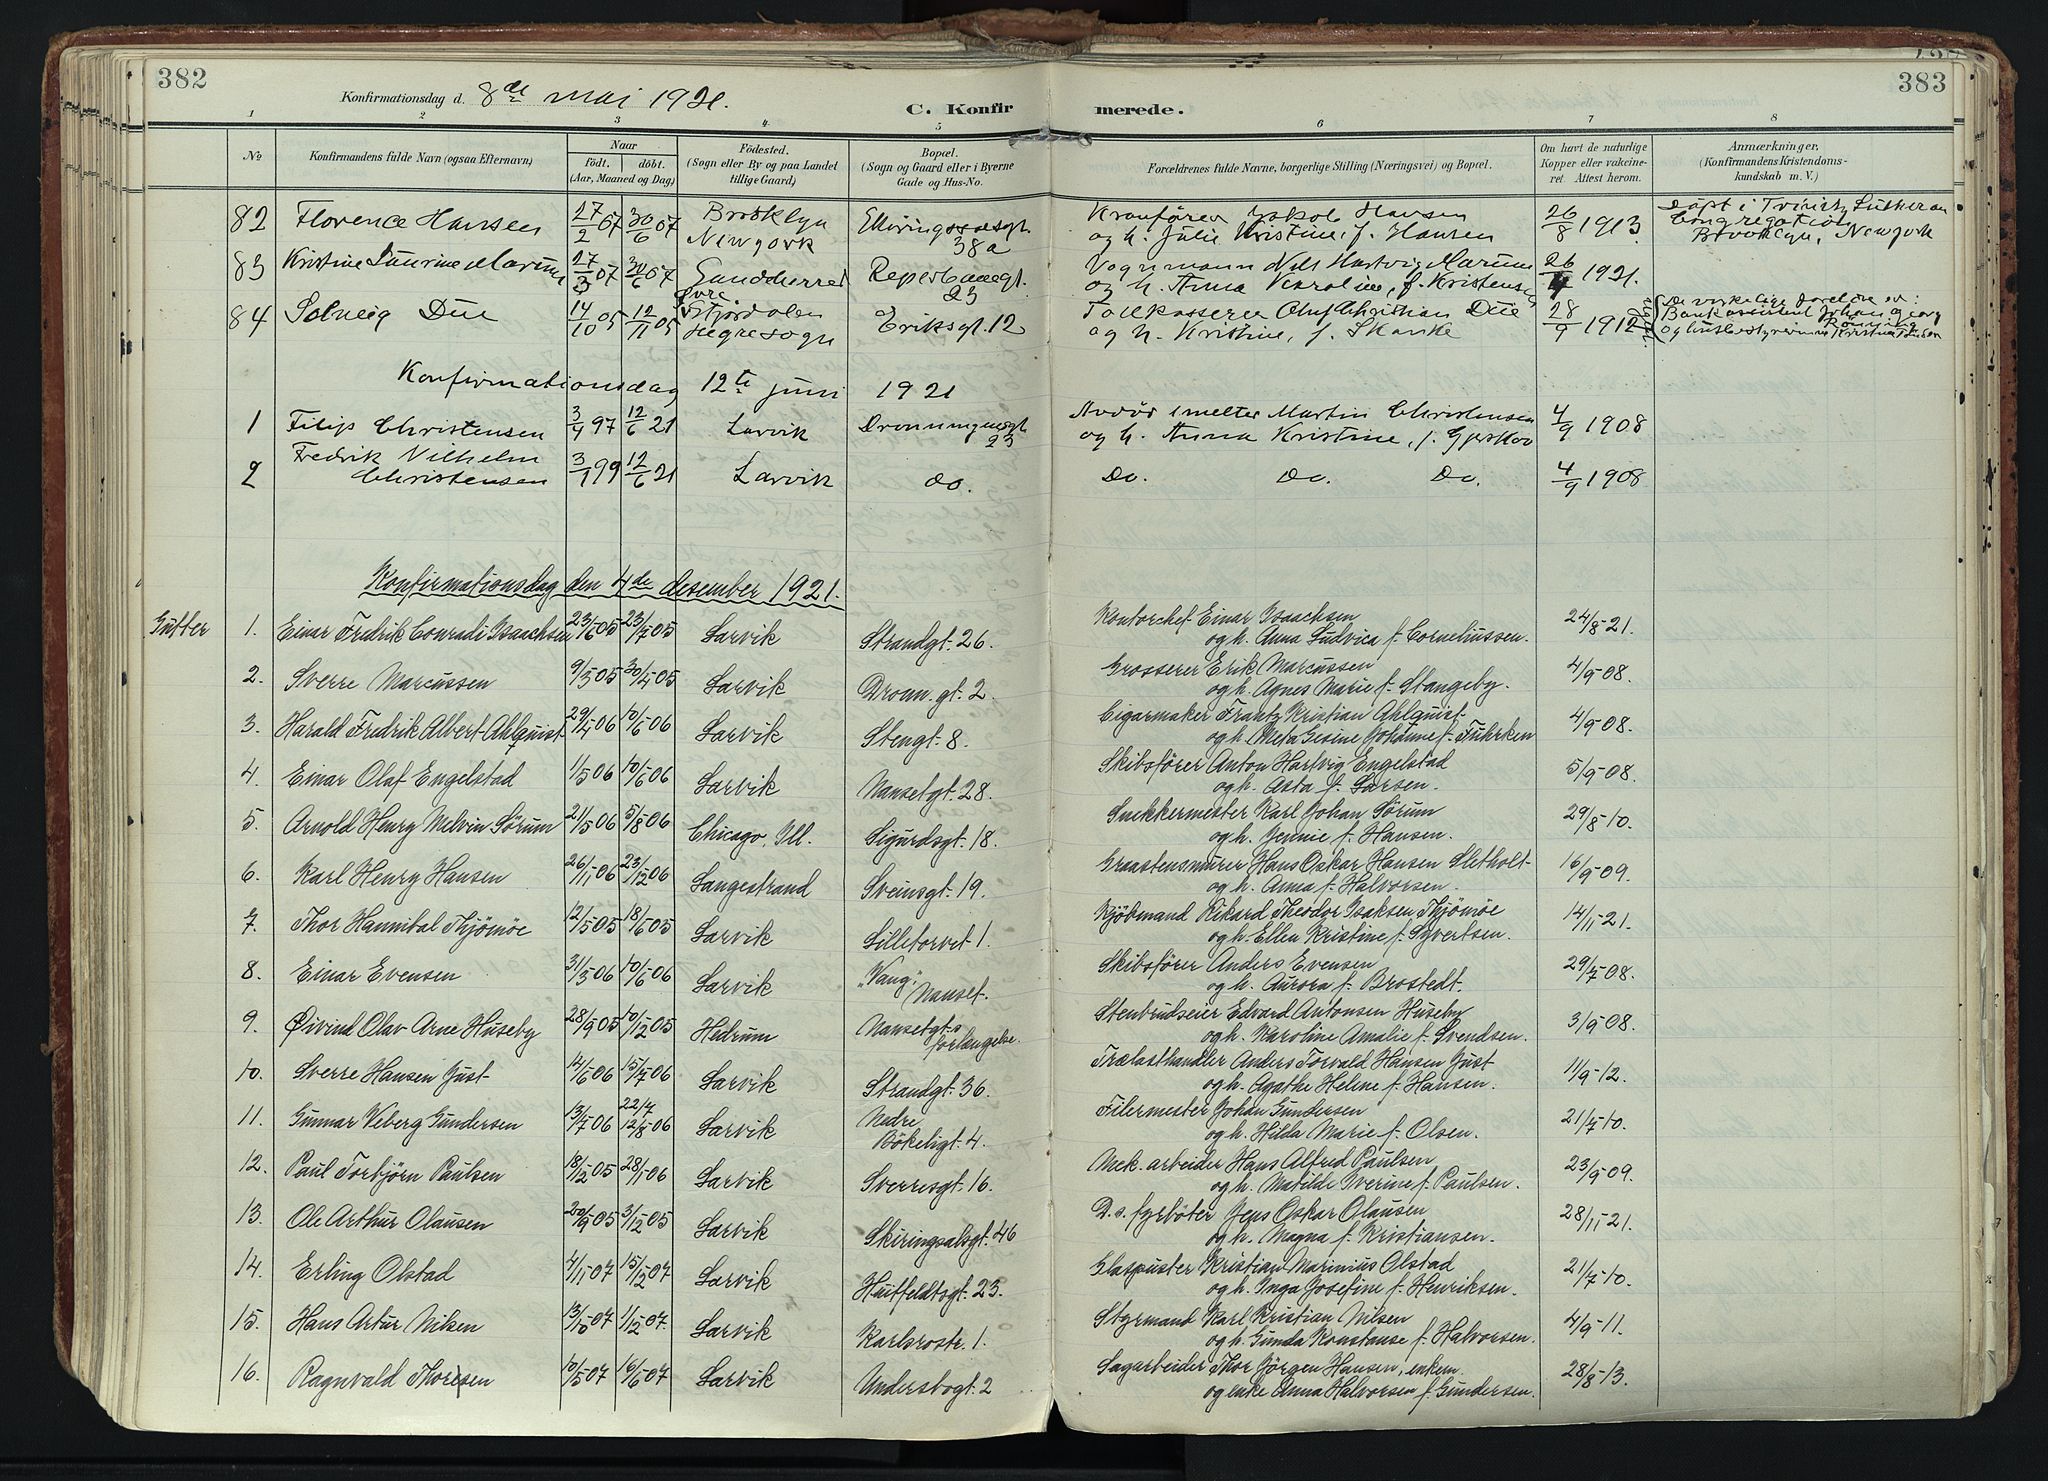 382
383
Konfirmationsdag d. 8de mai 1921.
C. Konfirmerede.
1 2 3 4 5 6 7 8
No
Konfirmandens fulde Navn (ogsaa Efternavn)
Naar
født. døbt.
(Aar, Maaned og Dag)
Fødested.
(Sogn eller By og paa Landet
tillige Gaard)
Bopæl.
(Sogn og Gaard eller i Byerne
Gade og Hus-No.
Forældrenes fulde Navne, borgerlige Stilling (Næringsvei) og Bopæl.
Om havt de naturlige
Kopper eller vakcine-
ret. Attest herom.
Anmærkninger,
(Konfirmandens Kristendoms-
kundskab m. V.)
82 Florence Hansen 27/2 07 30/6 07 Brooklyn Skiringssalsgt. Kranfører Jakob Hansen 26/8 1913. Døpt i Trinity Lutheran
Newyork 38a og h. Julie Kristine, f. Hansen Congregation
Brooklyn, Newyork
83 Kristine Laurine Marum 27/3 07 30/6 07 Sandeherred Reperbanegt. Vognmann Nils Hartvig Marum 26/4 1921.
23 og h. Anna Karoline, f. Kristensen
84 Solveig Due 14/10 05 12/11 05 Øvre Stjørdalen Eriksgt. 12 Tollkasserer Oluf Christian Due 28/9 1912 De virkelige foreldre er:
Hegre sogn og h. Kristine, f. Skanke Bankassistent Johan Georg
Konfirmationsdag 12te juni 1921
1 Filip Christensen 3/4 97 12/6 21 Larvik Dronningensgt. Avdød smelter Martin Christensen 4/9 1908
23 og h. Anna Kristine, f. Gjerskov
2 Fredrik Vilhelm
Christensen 3/1 99 12/6 21 Larvik do. Do. Do. Do. 4/9 1908
Konfirmationsdag den 4de desember 1921.
Gutter 1. Einar Fredrik Conradi Isaachsen 23/6 05 23/7 05 Larvik Strandgt. 26. Kontorchef Einar Isaachsen 24/8-21.
og h. Anna Ludvica f. Corneliussen.
2. Sverre Marcussen 9/3 05 30/4 05 Larvik Dronn. gt. 2. Grosserer Erik Marcussen 4/9-08.
og h. Agnes Marie f. Stangeby.
3. Harald Fredrik Albert Ahlquist 29/4 06 10/6 06 Larvik Stengt. 8. Cigarmaker Frantz Kristian Ahlquist 4/9-08.
og h. Meta Gesine Johanne f. Fuhrken
4. Einar Olaf Engelstad 1/5 06 10/6 06 Larvik Nansetgt. 28. Skibsfører Anton Hartvig Engelstad 5/9-08.
og h. Asta f. Larsen.
5. Arnold Henry Melvin Sørum 21/5 06 5/8 06 Chicago, Ill. Sigurdsgt. 18. Snekkermester Karl Johan Sørum 29/8-10.
og h. Jennie f. Hansen.
6. Karl Henry Hansen 26/11 06 23/12 06 Langestrand Sveinsgt. 19. Graastensmurer Hans Oskar Hansen Sletholt 16/9-09.
og h. Anna f. Halvorsen.
7. Thor Hannibal Thjømøe 12/5 05 18/6 05 Larvik Lilletorvet 1. Kjøbmand Rikard Theodor Isaksen Thjømøe 14/11-21.
og h. Ellen Kristine f. Syvertsen.
8. Einar Evensen 31/3 06 10/6 06 Larvik "Vang", Nanset. Skibsfører Anders Evensen 29/7-08.
og h. Aurora f. Brostedt.
9. Øivind Olav Arne Huseby 28/9 05 10/12 05 Hedrum Nansetgt.s forlængelse. Stenbrudseier Edvard Antonsen Huseby 3/9-08.
og h. Karoline Amalie f. Svendsen.
10. Sverre Hansen Just 14/6 06 15/7 06 Larvik Strandgt. 36. Trælasthandler Anders Torvald Hansen Just 11/9-12.
og h. Agathe Helene f. Hansen.
11. Gunnar Veberg Gundersen 13/7 06 22/7 12/8 06 Larvik Nedre Bøkeligt. 4. Filermester Johan Gundersen 21/7-10.
og h. Hilda Marie f. Olsen.
12. Paul Torbjørn Paulsen 18/12 05 28/1 06 Larvik Sverresgt. 16. Mek. arbeider Hans Alfred Paulsen 23/9-09.
og h. Matilde Iverine f. Paulsen.
13. Ole Arthur Olausen 20/9 05 3/12 05 Larvik Skiringsalsgt. 46 D.s. fyrbøter Jens Oskar Olausen 28/11-21.
og h. Magna f. Kristiansen.
14. Erling Olstad 4/11 07 15/12 07 Larvik Huitfeldtsgt. 23. Glaspuster Kristian Marinius Olstad 21/7-10.
og h. Inga Josefine f. Henriksen.
15. Hans Artur Nilsen 13/10 07 1/12 07. Larvik Karlsrostr. 1. Styrmand Karl Kristian Nilsen 4/9-11.
og h. Gunda Konstanse f. Halvorsen.
16. Ragnvald Thoresen 10/5 07 16/6 07 Larvik Undersbogt. 2 Sagarbeider Thor Jørgen Hansen, enkem. 28/8-13.
og enke Anna Halvorsen f. Gundersen.